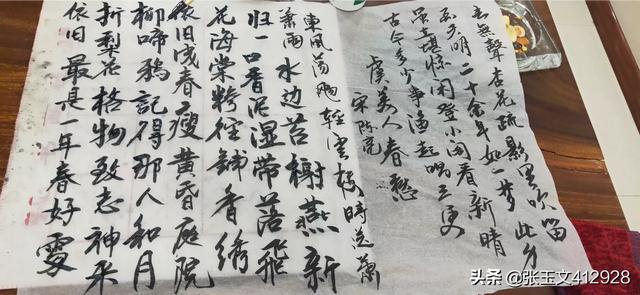 去無聲杏花疏影里吹笛
到天明二十余年如一梦此身
虽在堪惊闲登小阁看新晴
古今多少事渔起唱三更
虞美人春愁
宋陈亮
東風荡飏轻雲缕時送萧
萧雨水边苔榭燕新
归一口香泥湿带落飛
花海棠糁径铺香绣
依旧成春瘦黄昏庭院
柳啼鸦記得那人和月
折梨花格物致志神来
依旧最是一年春好處
头条 @张玉文412928